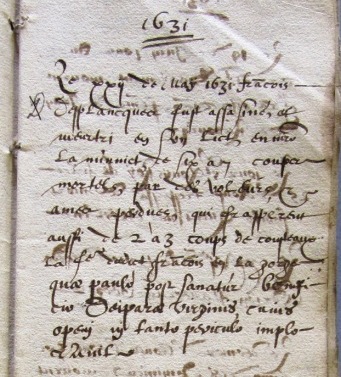 1631
Le xxij de May 1631 francois
Desplancques fust assasiné et
meurtri en son lict environ
La minuict de six a 7 coups
mortels par des voleurs &
ames perdues qui frapperent
aussi de 2 a 3 coups de couteaux
La fe dudict francois en la gorge
quæ paulò post sanatur benefi
cio Deiparæ virginis cuius
opem in tanto periculo implo
ravit